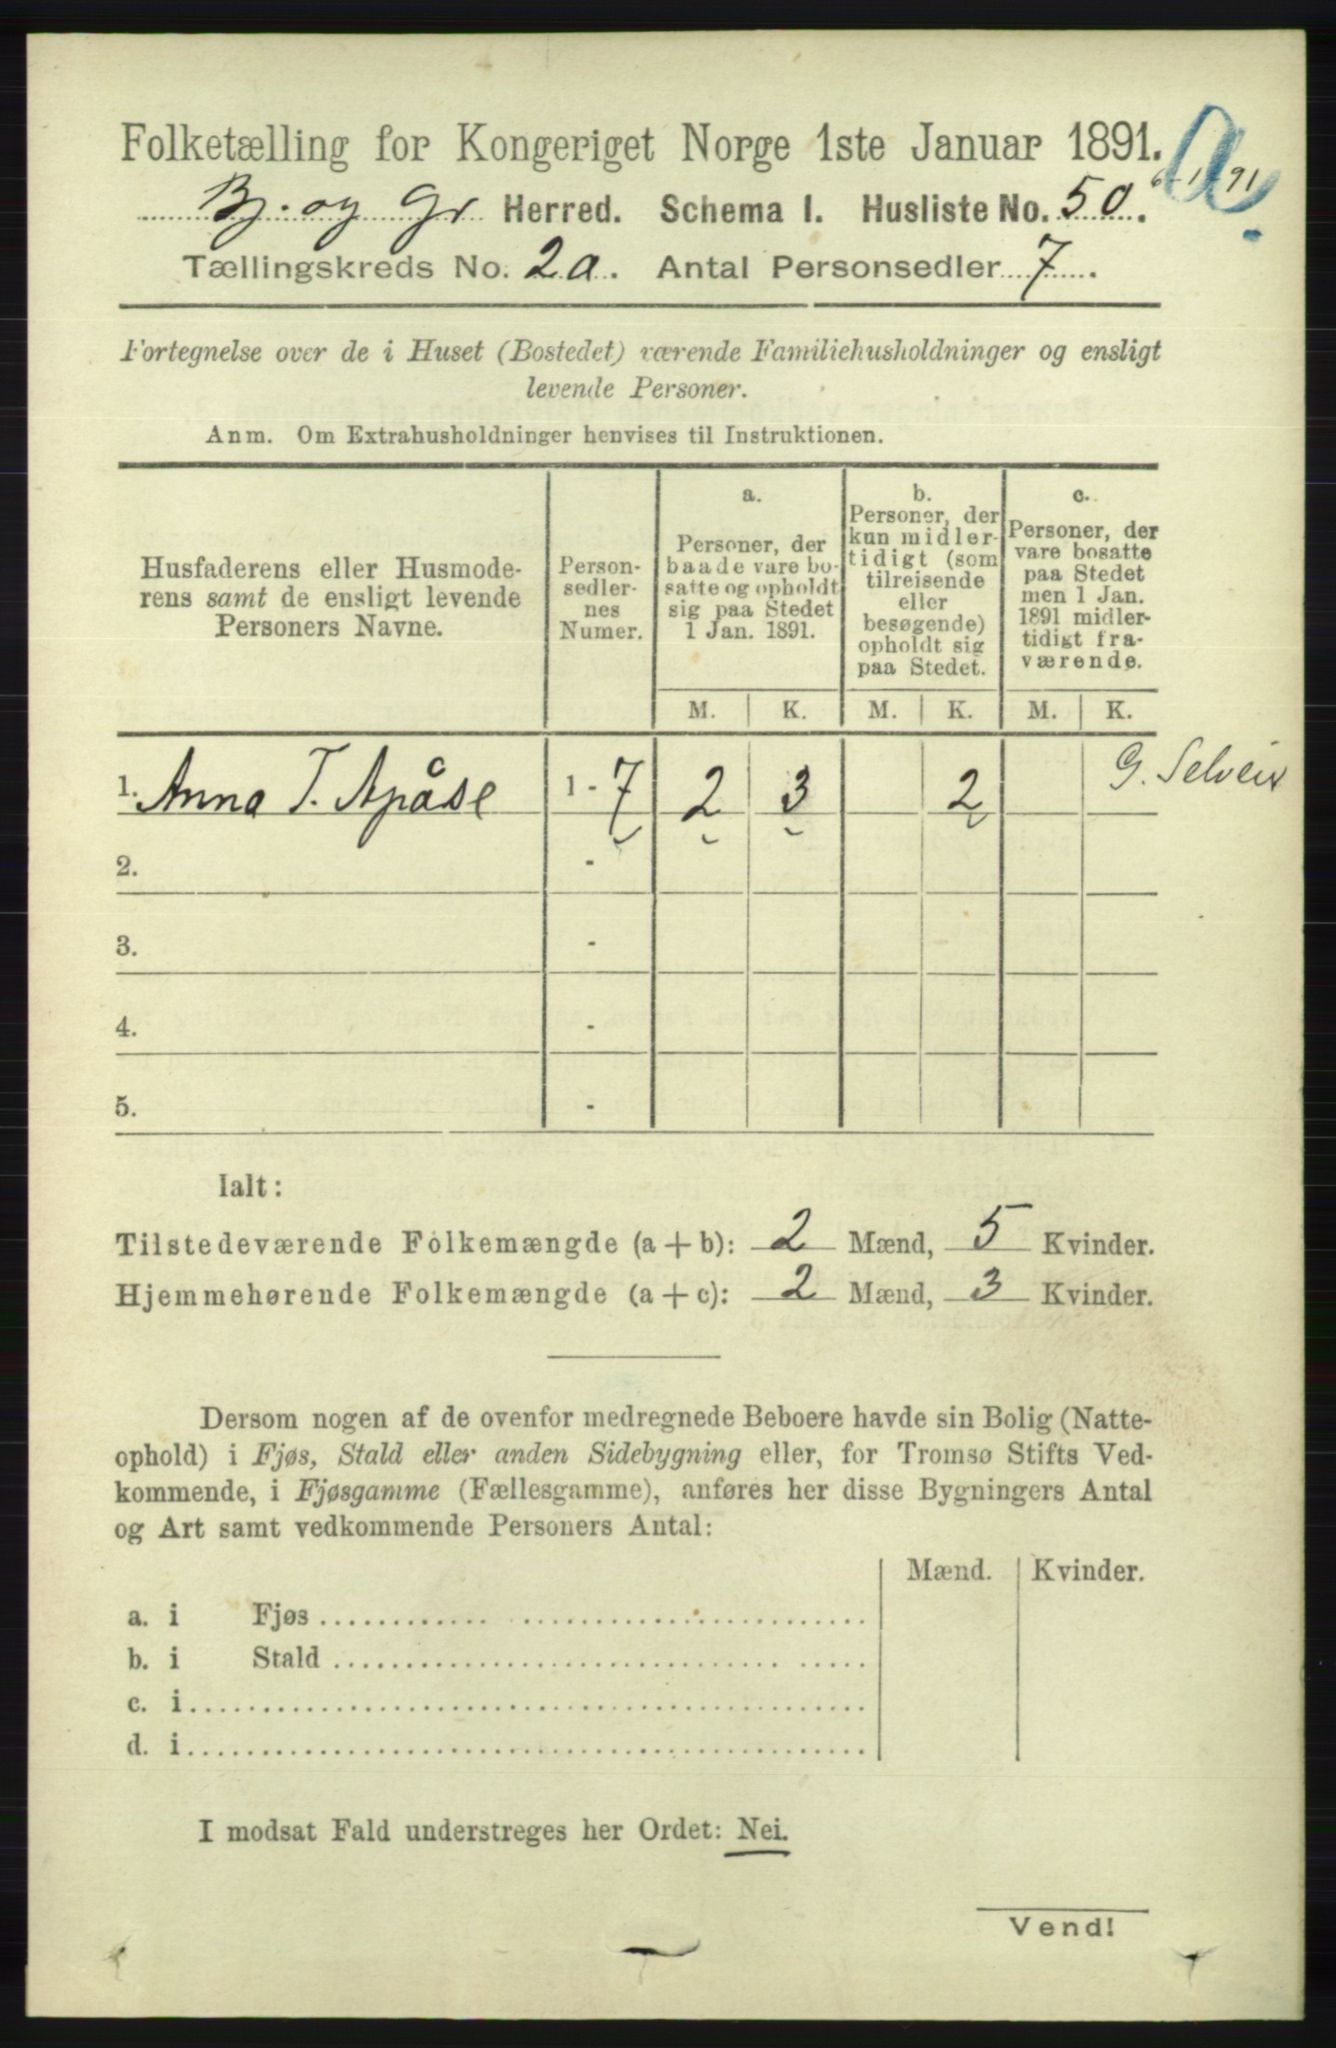 Folketælling for Kongeriget Norge 1ste Januar 1891.
6-1-91
Bj. og Gr Herred. Schema I. Husliste No. 50.
Tællingskreds No. 2a. Antal Personsedler 7.
Fortegnelse over de i Huset (Bostedet) værende Familiehusholdninger og ensligt
levende Personer.
Anm. Om Extrahusholdninger henvises til Instruktionen.
Husfaderens eller Husmode-
rens samt de ensligt levende
Personers Navne.
Person-
sedler-
nes
Numer.
a.
Personer, der
baade vare bo-
satte og opholdt
sig paa Stedet
1 Jan. 1891.
b.
Personer, der
kun midler-
tidigt (som
tilreisende
eller
besøgende)
opholdt sig
paa Stedet.
c.
Personer, der
vare bosatte
paa Stedet
men 1 Jan.
1891 midler-
tidigt fra-
værende.
M. K. M. K. M. K.
1. Anna T. Apåse 1 - 7 2 3 2 G.
2. -
3. -
4. -
5. -
Ialt:
Tilstedeværende Folkemængde (a + b): 2 Mænd, 5 Kvinder.
Hjemmehørende Folkemængde (a + c): 2 Mænd, 3 Kvinder.
Dersom nogen af de ovenfor medregnede Beboere havde sin Bolig (Natte-
ophold) i Fjøs, Stald eller anden Sidebygning eller, for Tromsø Stifts Ved-
kommende, i Fjøsgamme (Fællesgamme), anføres her disse Bygningers Antal
og Art samt vedkommende Personers Antal:
Mænd. Kvinder.
a. i Fjøs
b. i Stald
c. i
d. i
I modsat Fald understreges her Ordet: Nei.
Vend!